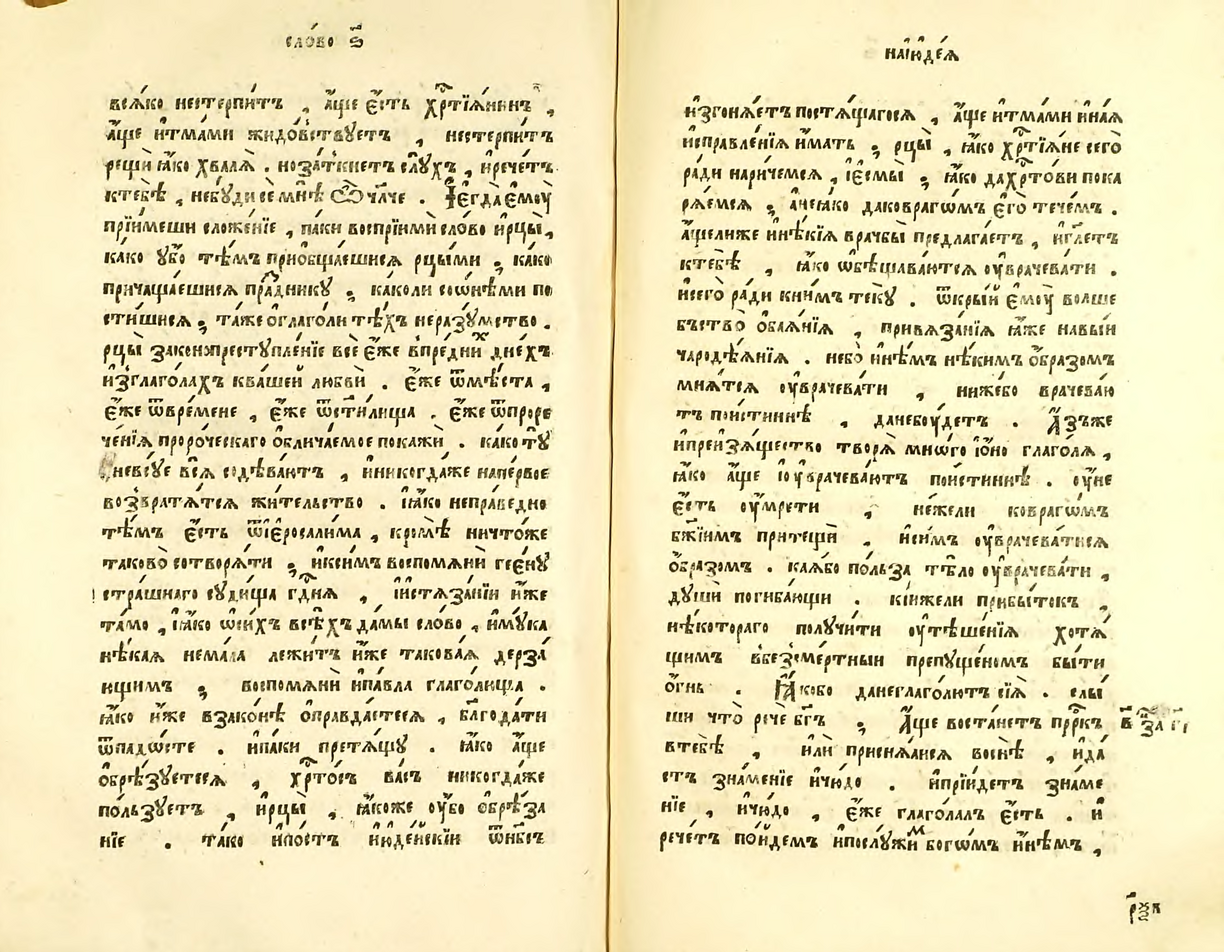 сло́во ѕ҃
всѧ́ко нестерпи́тъ , а҆́ще є҆́сть хрⷭ҇тїѧ́нинъ ,
а҆́ще и҆тма́ми жидо́вствꙋетъ , нестерпи́тъ
рещѝ ꙗ҆́ко хвалѧ̀ . ноза́ткнетъ слꙋ́хъ , и҆рече́тъ
ктебѣ̀ , небꙋ́ди се мнѣ̀ ѽ чл҃че . І҆є҆гда̀ є҆мꙋ̀
прїи́меши сложе́нїе , па́ки воспрїимѝ сло́во и҆рцы̀ ,
ка́ко ᲂу҆́бо тѣ́мъ приѻбща́ешисѧ рцы́ми ; ка́ко
причаща́ешисѧ пра́здникꙋ ; ка́коли соѻ҆нѣ́ми по
сти́шисѧ ; та́же ѻ҆глаго́ли тѣ́хъ неразꙋ́мство .
рцы̀ законопрестꙋпле́нїе всѐ є҆́же впре́днїих дне́хъ
и҆зглаго́лахъ ква́шей любвѝ . є҆́же ѿмѣ́ста ,
є҆́же ѿвре́мене , є҆́же ѿст҃и́лища . є҆́же ѿпроре
че́нїѧ проро́ческаго ѻ҆блича́емое покажѝ . ка́ко тꙋ́
невсꙋе всѧ̀ содѣ́вают̾ъ , и҆никогда́же напе́рвое
возвратѧ́тсѧ жи́тельство . ꙗ҆́ко непра́ведно
тѣ́мъ є҆́сть ѿі҆єросали́ма , кромѣ̀ ничто́же
таково̀ сотворѧ́ти ; и҆ксимъ воспомѧнѝ геє́нꙋ
стра́шнаго сꙋди́ща гдⷭ҇нѧ , и҆истѧза́нїи и҆́же
та́мо , ꙗ҆́ко ѡ҆си́хъ всѣ́хъ дамы̀ сло́во , и҆мꙋ́ка
нѣ́каѧ нема́ла лежи́тъ и҆́же такова́ѧ дерза́
ющимъ ; воспомѧнѝ и҆па́вла глаго́лища .
ꙗ҆́ко и҆́же взако́нѣ ѻ҆правда́етесѧ , бл҃года́ти
ѿпадо́сте . и҆па́ки претѧ́щꙋ . ꙗ҆́ко а҆́ще
ѻ҆брѣ́зꙋетесѧ , хрⷭ҇то́съ ва́съ никогда́же
по́льзꙋетъ , и҆рцы̀ , ꙗ҆́коже ᲂу҆́бо ѻ҆брѣ́за
нїе . та́ко и҆по́стъ и҆юде́йскїи ѿнб҃съ
наію҆де́ѧ
и҆згонѧ́етъ постѧ́щагосѧ , а҆́ще и҆тма́ми и҆на́ѧ
и҆справле́нїѧ и҆мать ; рцы̀ , ꙗ҆́ко хрⷭ҇тїѧ́не сего̀
ра́ди нарича́емсѧ , і҆є҆смы̀ ; ꙗ҆́ко дахрⷭ҇то́ви пока
рѧ́емсѧ ; а҆неꙗ҆́ко даковраго́мъ є҆го̀ тече́мъ .
а҆́щелиже и҆нѣ́кїѧ врачбы̀ предлага́етъ , и҆гл҃етъ
ктебѣ̀ , ꙗ҆́ко ѡ҆бѣщава́ютсѧ ᲂу҆врачева́ти .
и҆сего̀ ра́ди кни́мъ текꙋ̀ . ѿкры́й є҆мꙋ̀ волше
бство̀ ѻ҆баѧ́нїѧ , привѧза́нїѧ ꙗ҆́же навы́и
чародѣѧ́нїѧ . небо̀ и҆нѣ́мъ нѣ́кимъ ѻ҆́бразомъ
мнѧ́тсѧ ᲂу҆врачева́ти , ниже́бо врачеваю́
тъ пои́стиннѣ , данебꙋ́детъ . А҆́зъже
и҆преи҆зѧ́щество творѧ̀ мно́го і҆о҆но глаго́лѧ ,
ꙗ҆́ко а҆́ще і҆ᲂу҆врачева́ютъ пои́стиннѣ . ᲂу҆не
є҆́сть ᲂу҆мре́ти , не́жели ковраго́мъ
бж҃їимъ притещѝ . и҆си́мъ ᲂу҆врачева́тисѧ
ѻ҆́бразомъ . ка́ѧбо по́льза тѣ́ло ᲂу҆врачева́ти ,
дꙋшѝ погиба́ющи . кі́ижели прибы́токъ ,
нѣ́котораго получи́ти ᲂу҆тѣше́нїѧ хотѧ́
щимъ вбезсме́ртныи препꙋще́номъ бы́ти
ѻ҆́гнь . Ꙗ҆́кобо данеглаго́лютъ сїѧ̀ . слы́
ши что̀ речѐ бг҃ъ ; А҆́ще воста́нетъ прⷪ҇ркъ
втебѣ̀ , и҆лѝ присни́асѧ воснѣ̀ , и҆да́
стъ зна́менїе и҆чю́до . и҆прїи́детъ зна́ме
нїе , и҆чю́до , є҆́же глаго́лалъ є҆́сть . и҆
рече́тъ по́йдемъ и҆послꙋ́жим бого́мъ и҆нѣ́мъ ,